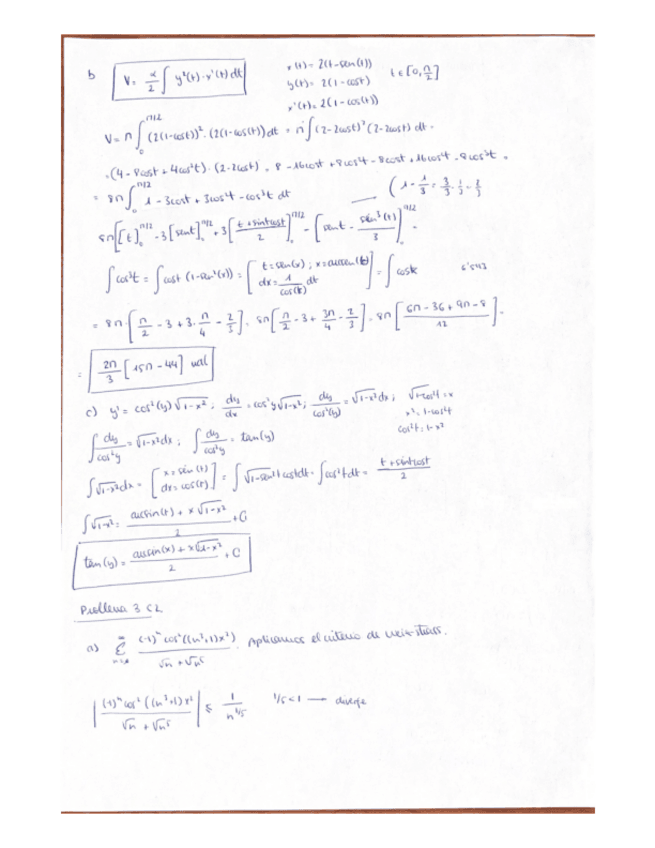 b V = π/2 ∫ y²(t)·x'(t) dt
x(t) = 2(t-sen(t))
y(t) = 2(1-cost) t ∈ [0, π/2]
x'(t) = 2(1-cos(t))
V = π ∫₀^(π/2) (2(1-cost))²·(2(1-cos(t))dt = π ∫(2-2cost)²(2-2cost) dt =
(4-8cost+4cos²t)·(2-2cost) = 8-16cost+8cos²t-8cost+16cos²t-8cos³t =
= 8π ∫₀^(π/2) 1-3cost+3cos²t-cos³t dt
(1-1/3 = 3/3-1/3 = 2/3
8π[[t]₀^(π/2) -3[sent]₀^(π/2) +3[(t+sintcost)/2]₀^(π/2) - [sent - sen³(t)/3]₀^(π/2) =
∫cos³t = ∫cost (1-sen²(x)) = [t=sen(x); x=arcsen(t) dx = 1/cos(t) dt] = ∫cost 6'543
= 8π·[π/2 -3+3·π/4 - 2/3] = 8π[π/2 -3+ 3π/4 - 2/3] = 8π[(6π-36+9π-8)/12] =
= 2π/3 [15π-44] ud³
c) y' = cos²(y)√1-x²; dy/dx = cos²y√1-x²; dy/cos²(y) = √1-x²dx; √1-cos²t = x
x² = 1-cos²t
cos²t = 1-x²
∫dy/cos²y = √1-x²dx; ∫dy/cos²y = tan(y)
∫√1-x²dx = [x=sin(t) dx=cos(t)] = ∫√1-sen²t costdt = ∫cos²tdt = (t+sintcost)/2
∫√1-x² = (arcsin(t)+x√1-x²)/2 + C
tan(y) = (arcsin(x)+x√1-x²)/2 + C
Problema 3 C2
a) Σ (-1)ⁿ cos²((n³+1)x²)/(√n + √n⁵). Aplicamos el criterio de Weirstrass.
|(-1)ⁿ cos²((n³+1)x²/(√n + √n⁵)| ≤ 1/n^(1/5) 1/5<1 → diverge